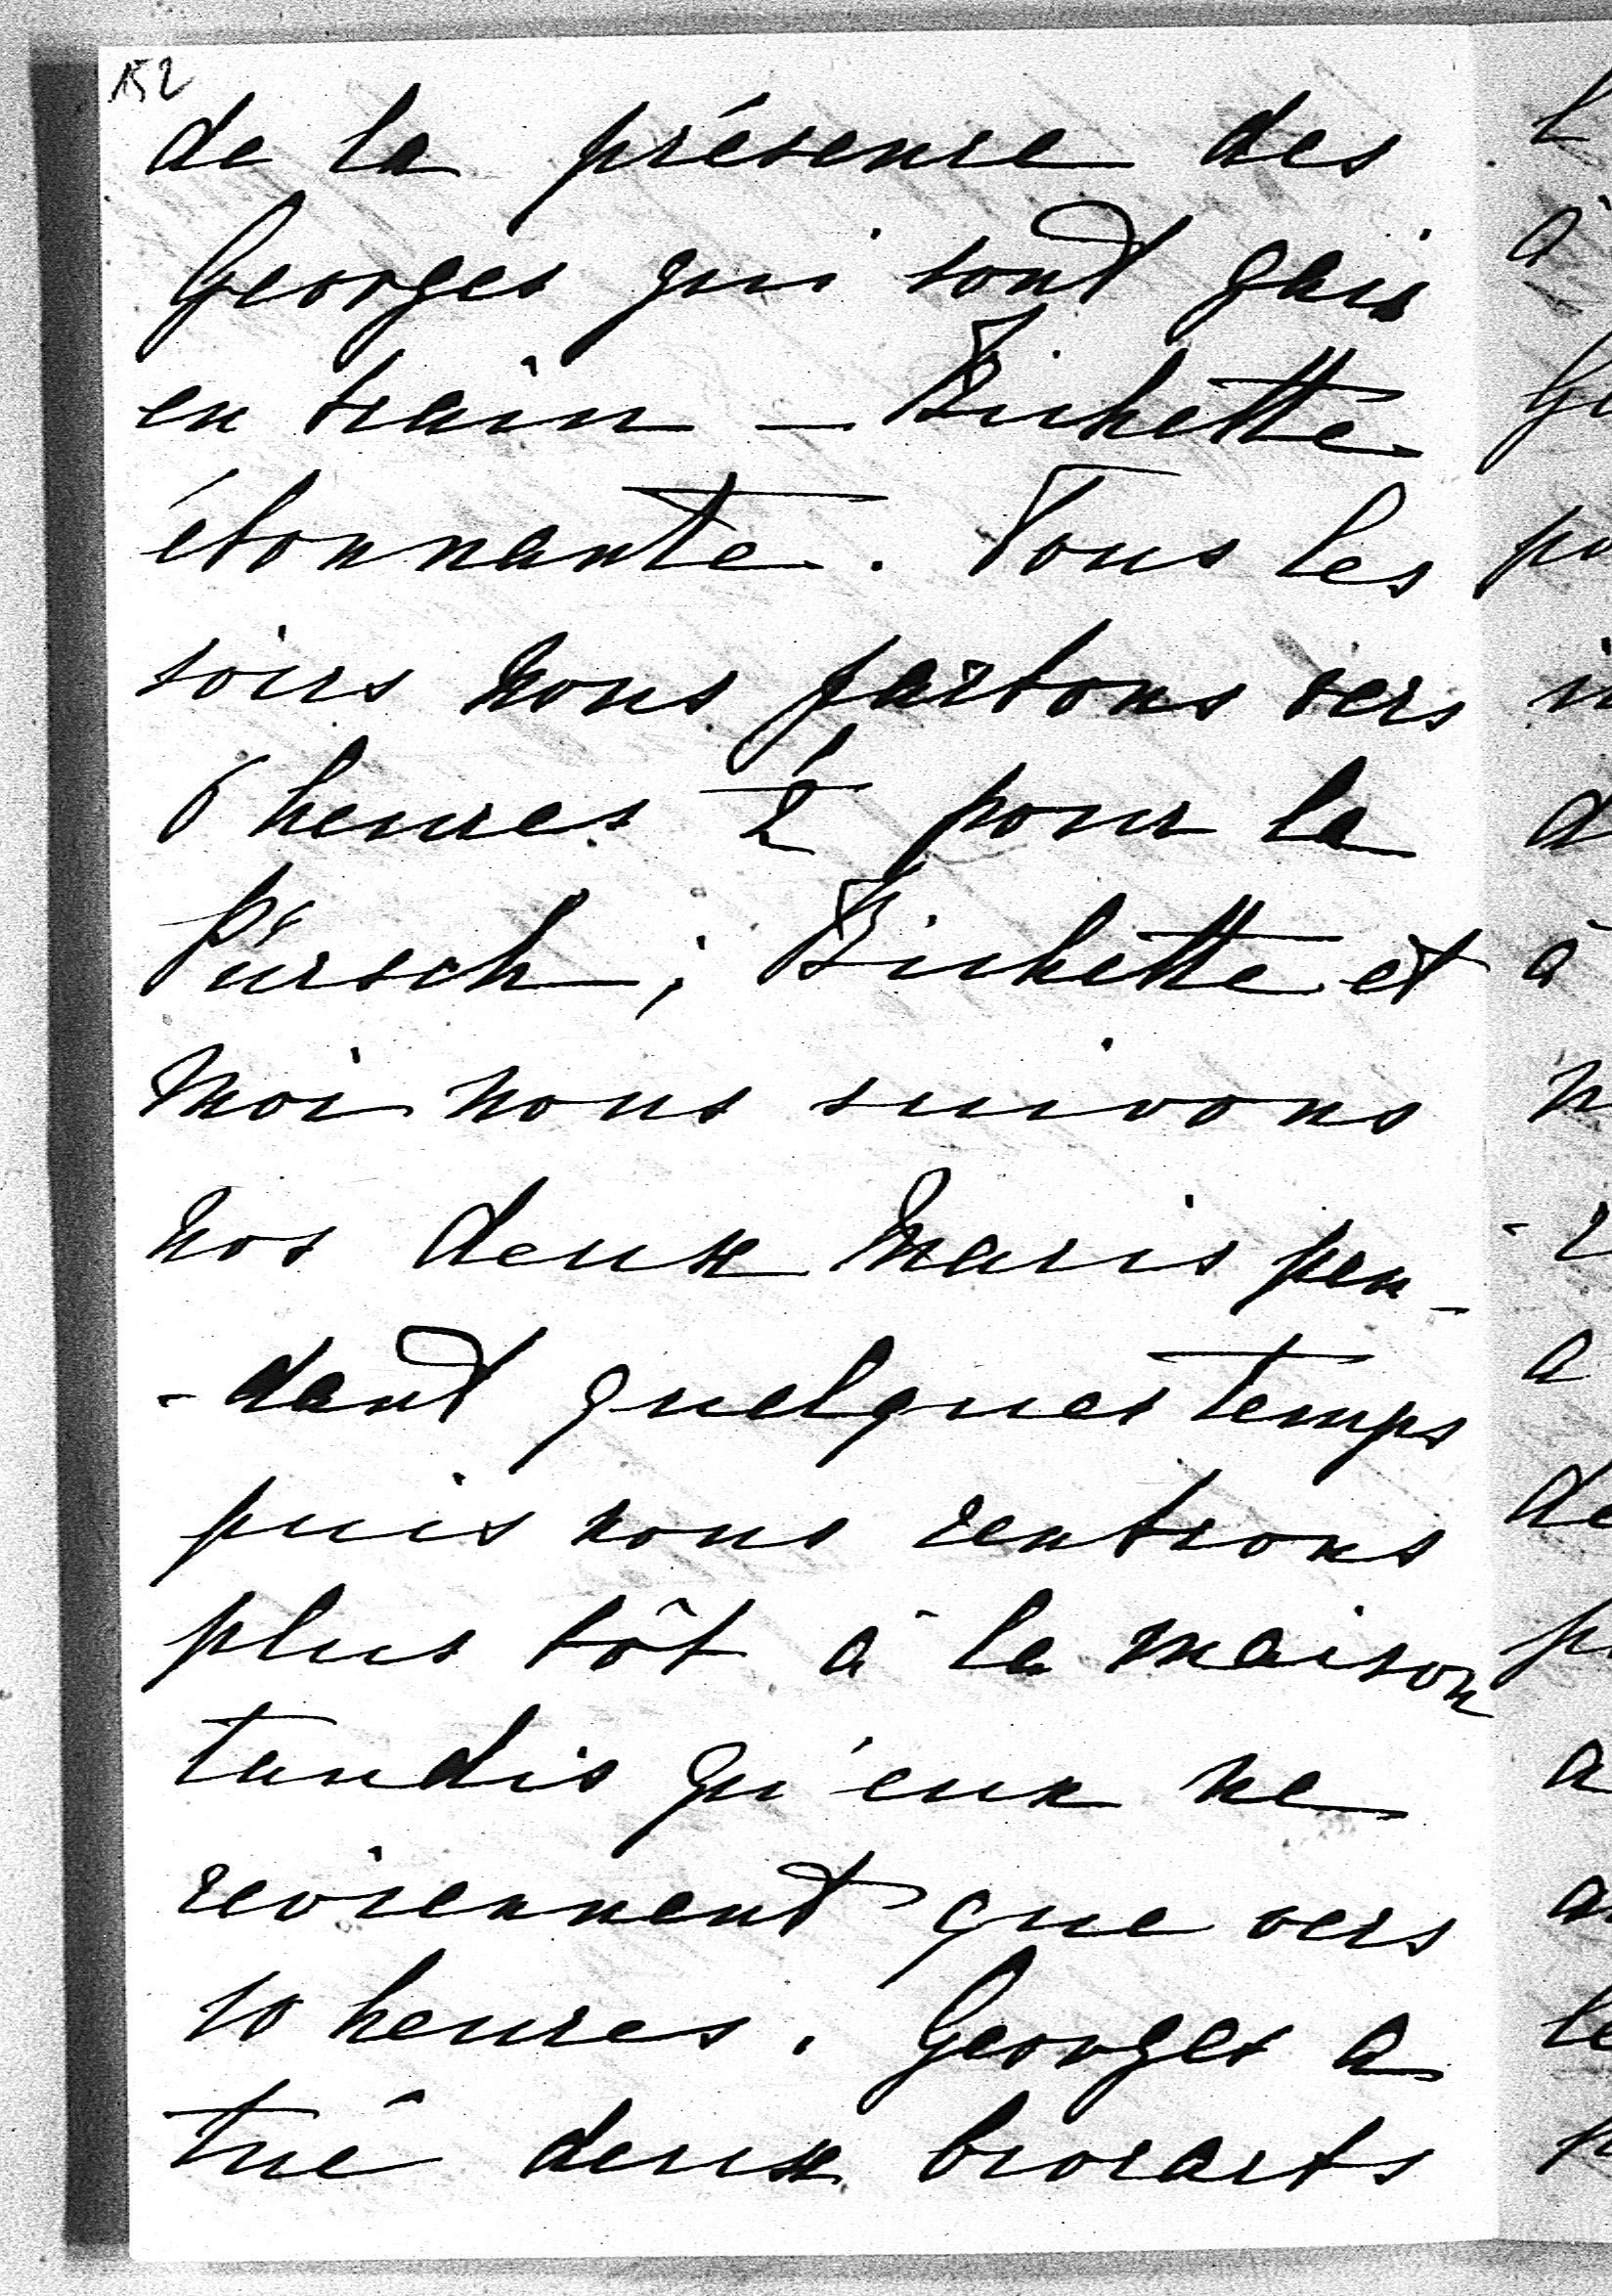 152
de la présence des
Georges qui sont gais
en train — Bichette
étonnante. Tous les
soirs nous partons vers
6 heures ½ pour la
Pürsch ; Bichette et
moi nous suivons
nos deux maris pen-
-dant quelques temps
puis nous rentrons
plus tôt à la maison
tandis qu'eux ne
reviennent que vers
10 heures. Georges a
tué deux brocarts